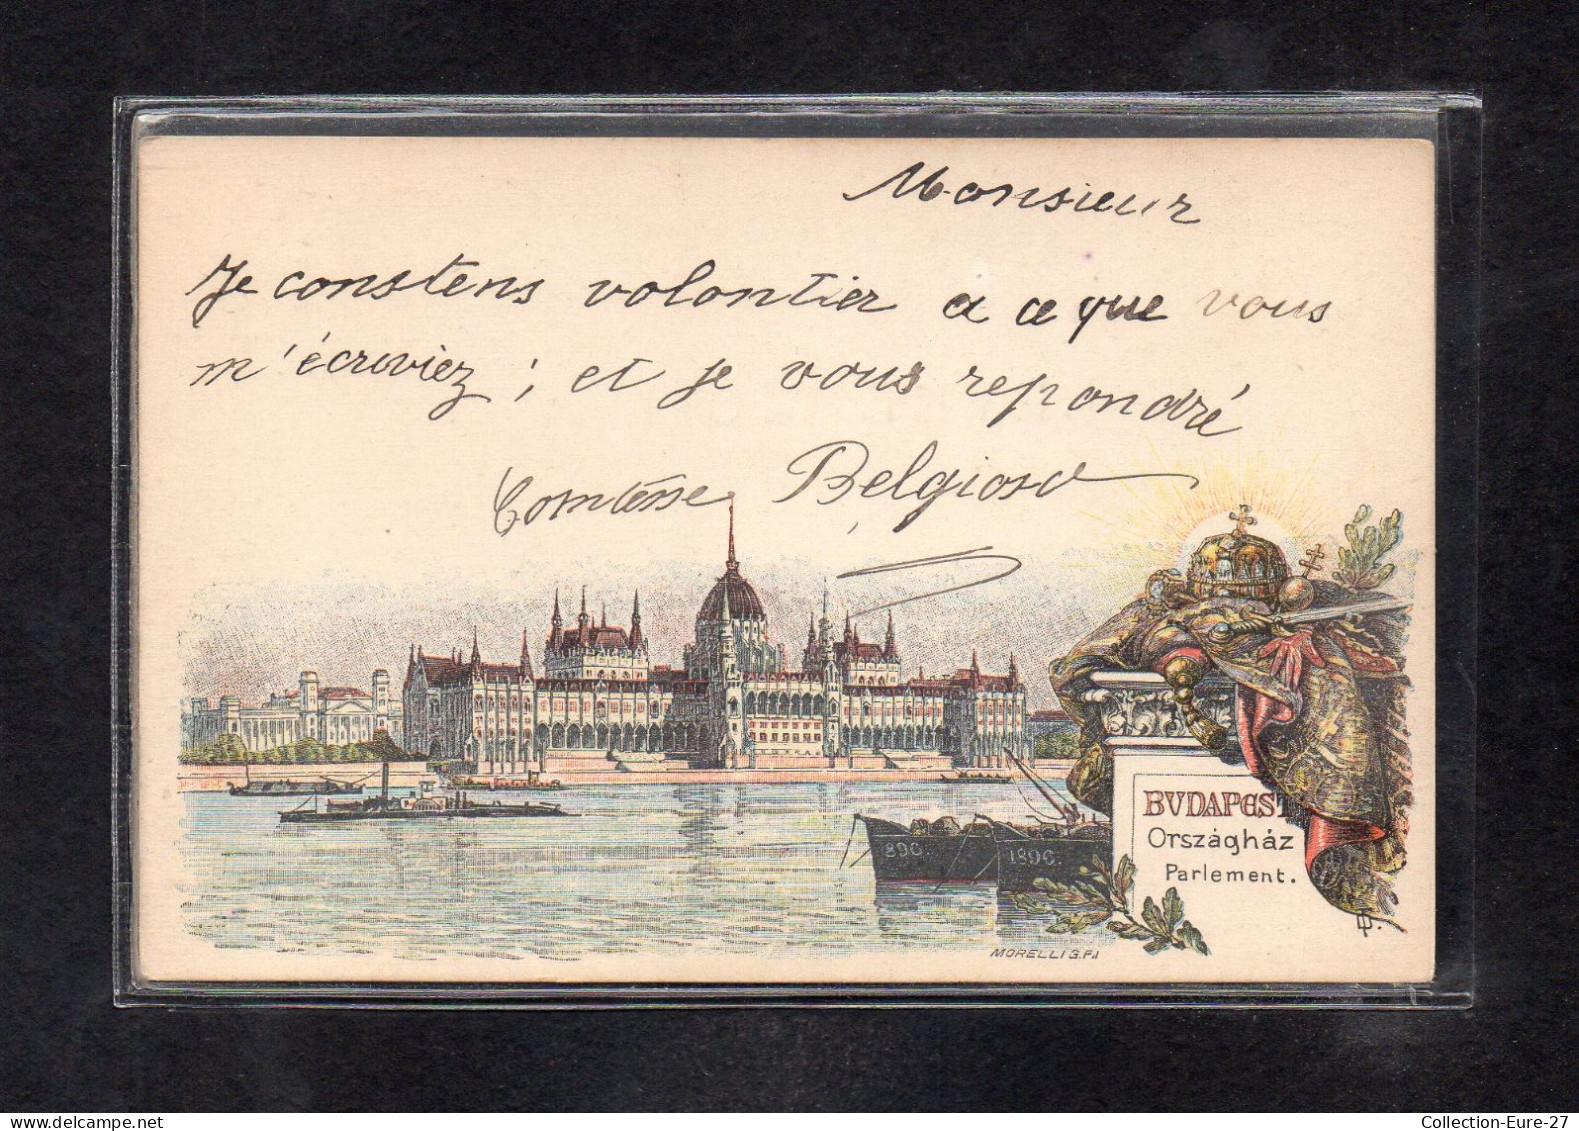 Monsieur
Je constens volontier a ce que vous
m'écriviez ; et je vous repondré
Comtesse Belgioso
896.
1896.
BVDAPEST
Országház
Parlement.
MORELLI G.F.
Collection-Eure-27